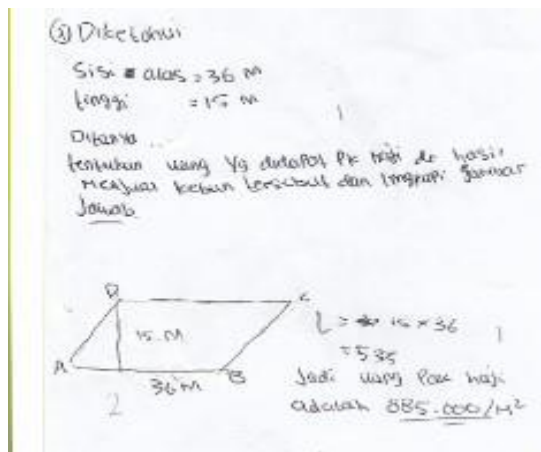 ③ Diketahui
Sisi alas = 36 M
tinggi = 15 M
1
Ditanya ...
tentukan uang Yg didapat Pk haji de hasil
Menjual kebun tersebut dan lengkapi gambar
Jawab
D
C
15 M
A
36 M
B
2
L = 15 × 36
= 535
1
Jadi uang Pak haji
adalah 885.000/M²